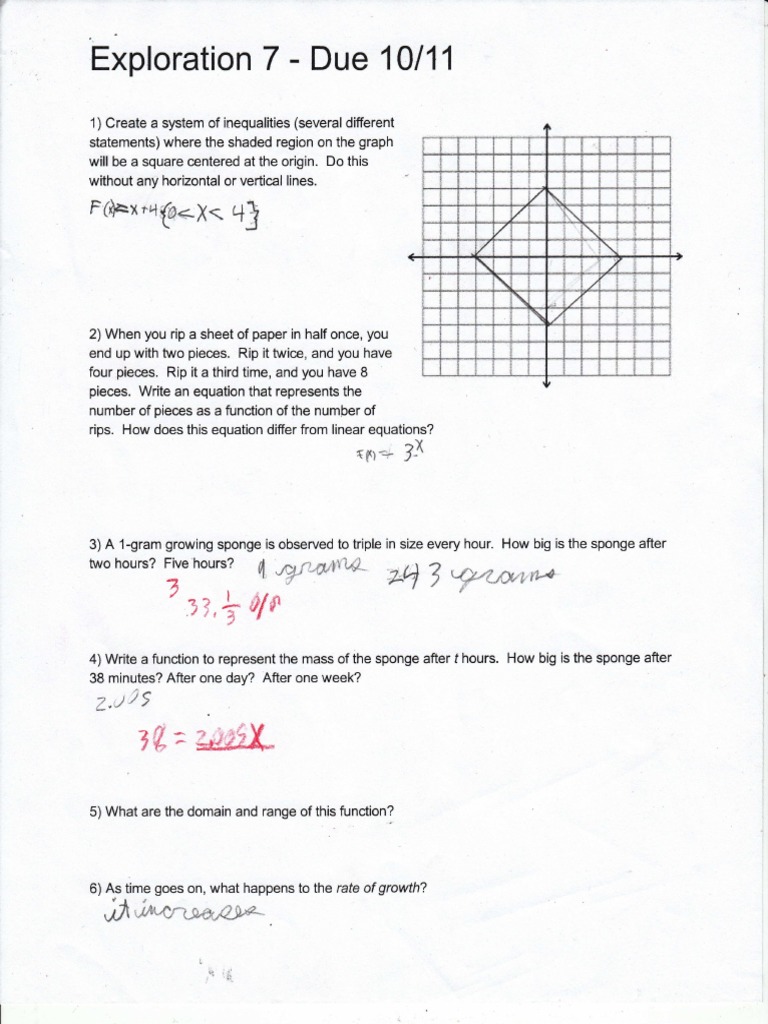 Exploration 7 - Due 10/11
1) Create a system of inequalities (several different
statements) where the shaded region on the graph
will be a square centered at the origin. Do this
without any horizontal or vertical lines.
F(x)=x+4{0<x<4}
2) When you rip a sheet of paper in half once, you
end up with two pieces. Rip it twice, and you have
four pieces. Rip it a third time, and you have 8
pieces. Write an equation that represents the
number of pieces as a function of the number of
rips. How does this equation differ from linear equations?
F(x) = 3^x
3) A 1-gram growing sponge is observed to triple in size every hour. How big is the sponge after
two hours? Five hours?
9 grams 243 grams
3
33. 1/3 %
4) Write a function to represent the mass of the sponge after t hours. How big is the sponge after
38 minutes? After one day? After one week?
2.005
38 = 2.005X
5) What are the domain and range of this function?
6) As time goes on, what happens to the rate of growth?
it increases